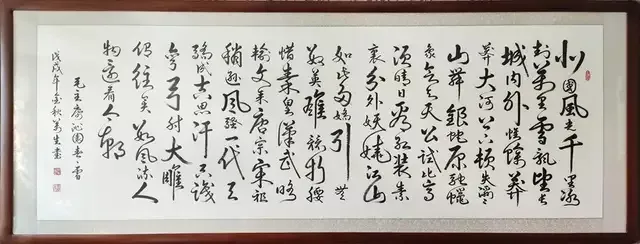 北国风光千里冰
封万里雪飘望长
城内外惟余莽
莽大河上下顿失滔滔
山舞银蛇原驰蜡
象欲与天公试比高
须晴日看红装素
裹分外妖娆江山
如此多娇引无
数英雄竞折腰
惜秦皇汉武略
输文采唐宗宋祖
稍逊风骚一代天
骄成吉思汗只识
弯弓射大雕
俱往矣数风流人
物还看今朝
毛主席沁园春雪
戊戌年金秋万生书